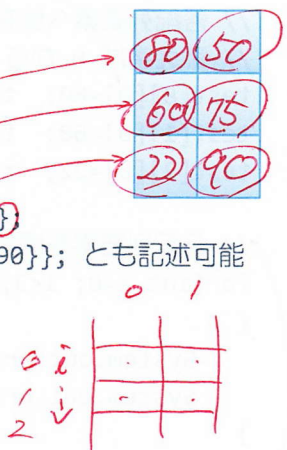 80 50
60 75
22 90
};
90}}; とも記述可能
0 1
0 i
1 i
2